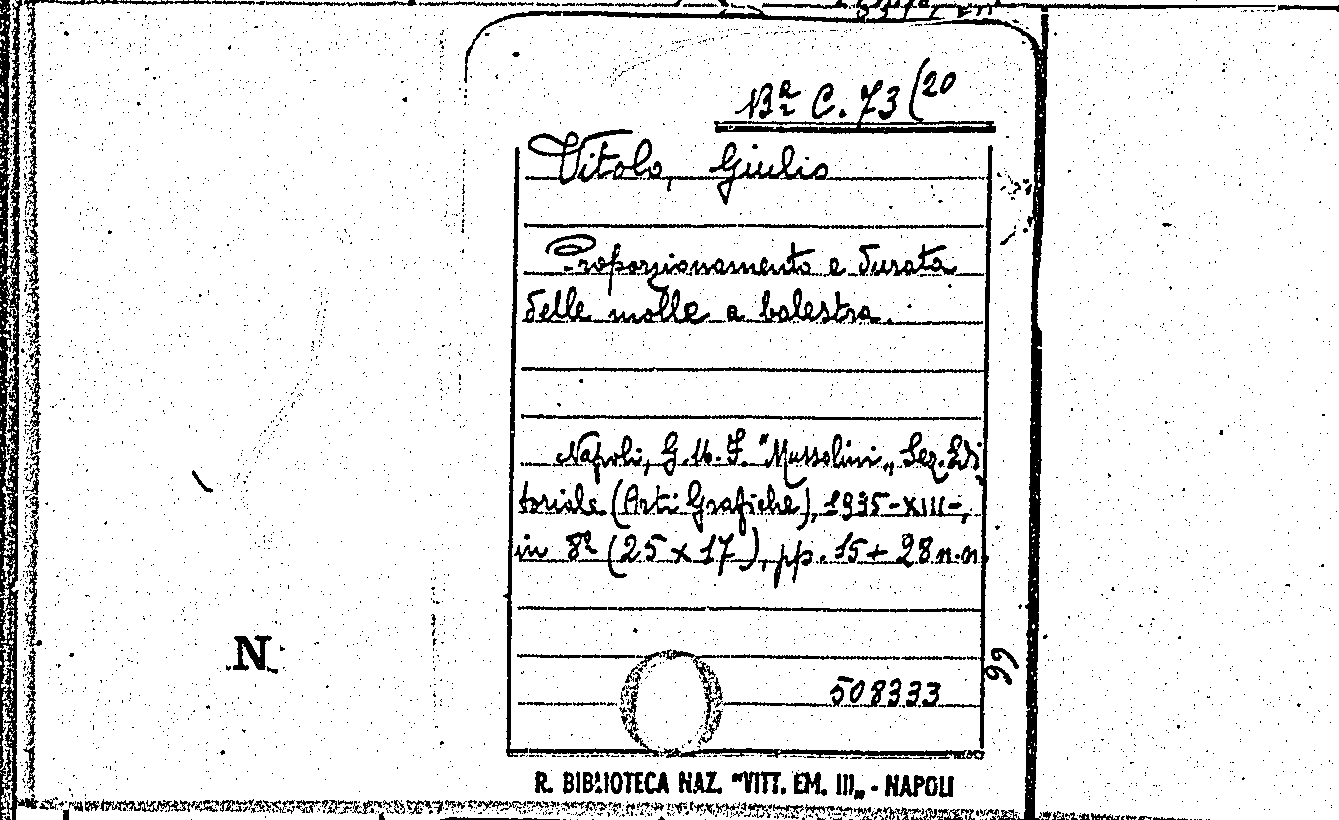 Bª C. 73 (20
Vitolo, Giulio
Proporzionamento e durata
delle molle a balestra.
Napoli, G.U.F. "Mussolini„ Sez. Edi
toriale (Arti Grafiche), 1935-XIII-,
in 8º (25 x 17), pp. 15 + 28 n.n.
508333
99
N
R. BIBLIOTECA NAZ. "VITT. EM. III„ - NAPOLI